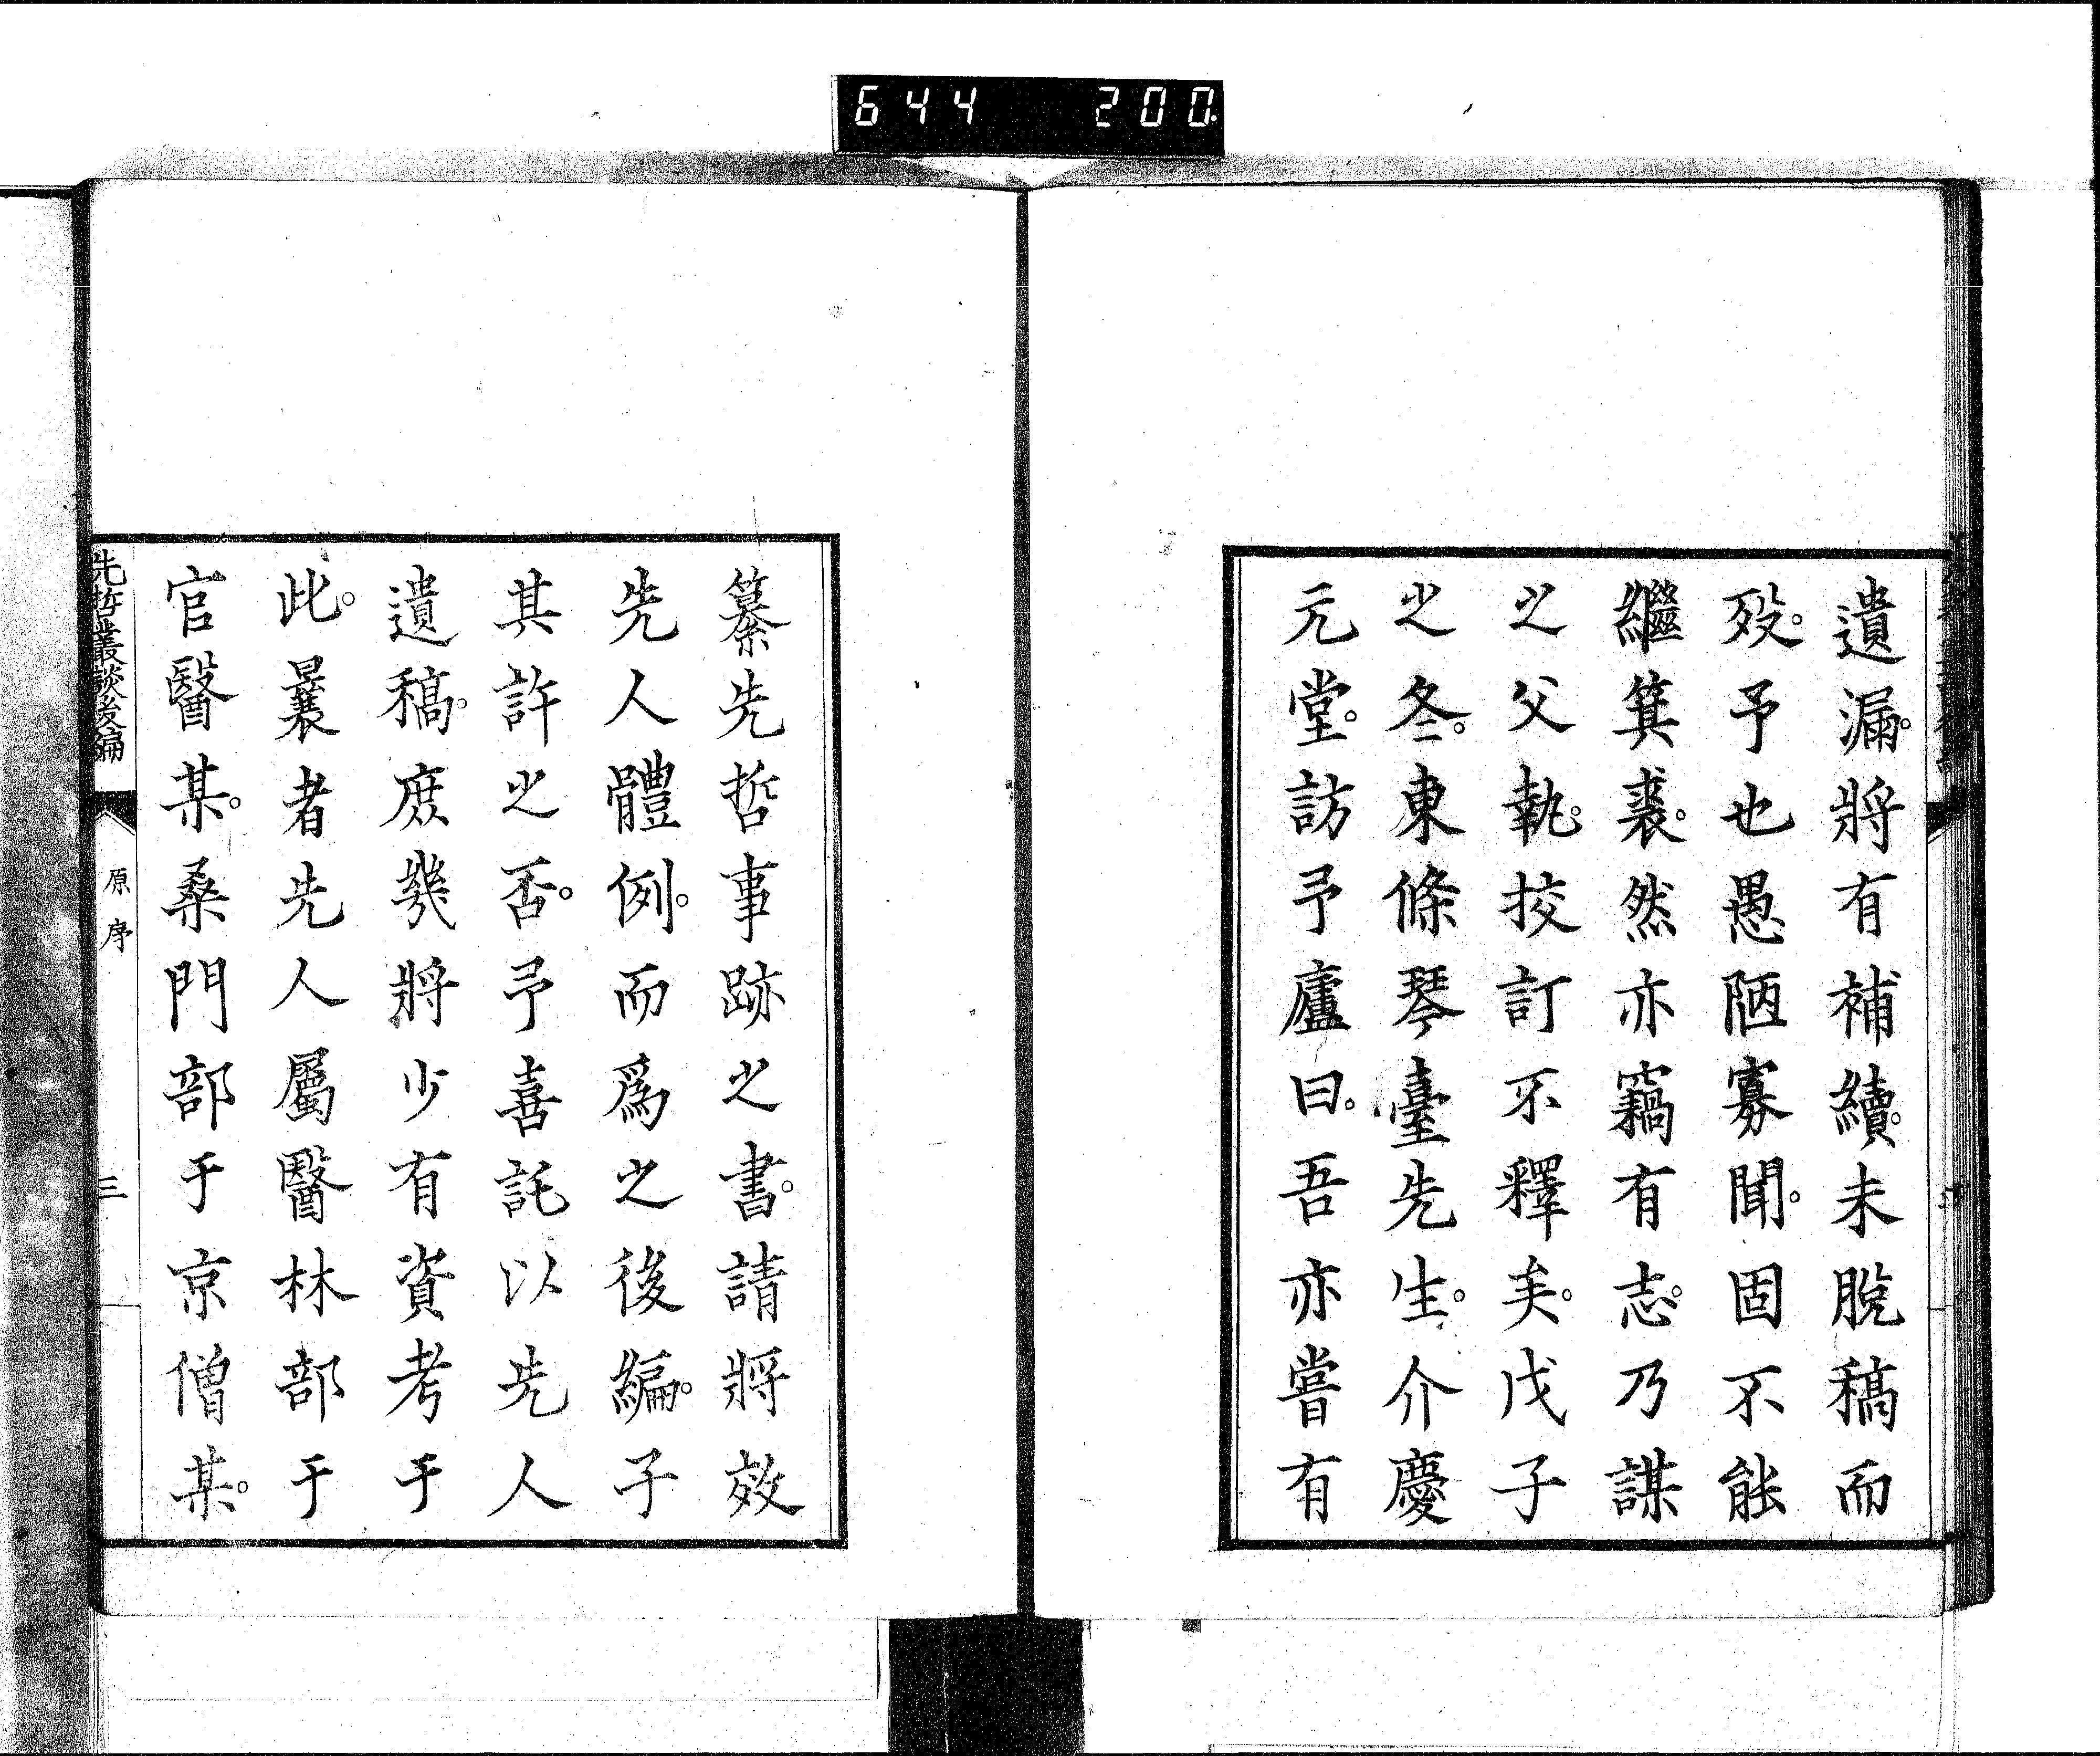 644 200
遺漏。將有補續。未脫稿而
歿。予也愚陋寡聞。固不能
繼箕裘。然亦竊有志。乃謀
之父執。挍訂不釋矣。戊子
之冬。東條琴臺先生。介慶
元堂。訪予廬曰。吾亦嘗有
纂先哲事跡之書。請將效
先人體例。而爲之後編。子
其許之否。予喜託以先人
遺稿。庶幾將少有資考于
此。曩者先人屬醫林部于
官醫某。桑門部于京僧某。
先哲叢談後編
原序
三